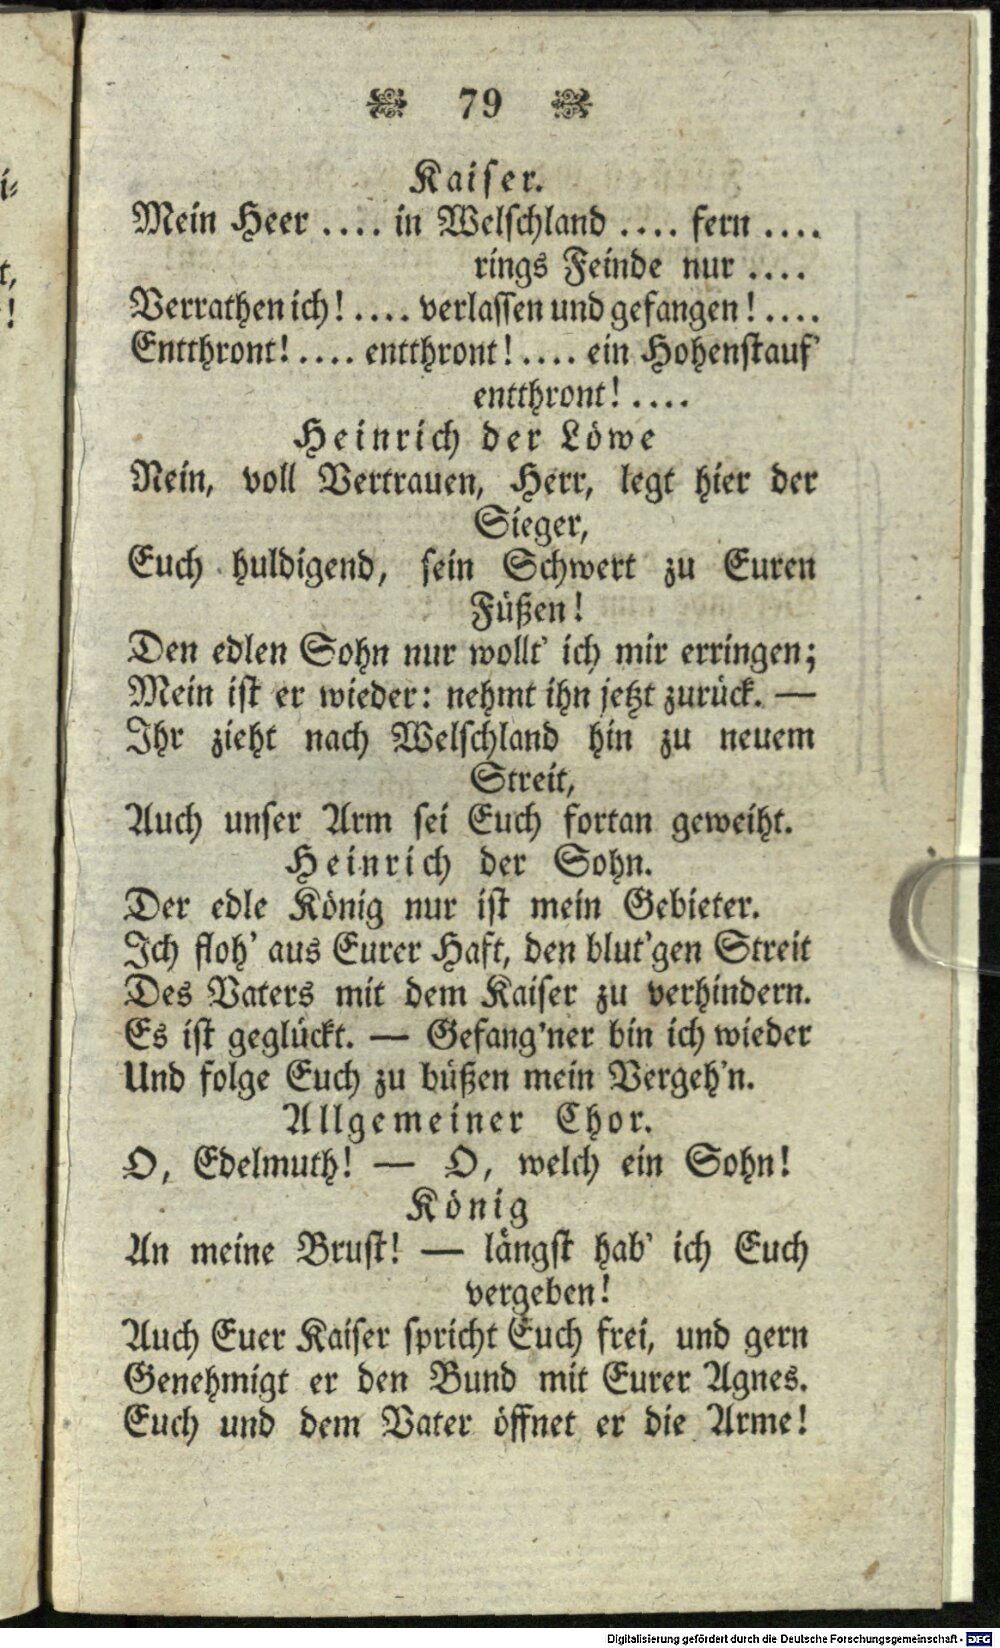 79
Kaiser.
Mein Heer .... in Welschland .... fern ....
rings Feinde nur ....
Verrathen ich! .... verlassen und gefangen! ....
Entthront! .... entthront! .... ein Hohenstauf'
entthront! ....
Heinrich der Löwe
Nein, voll Vertrauen, Herr, legt hier der
Sieger,
Euch huldigend, sein Schwert zu Euren
Füßen!
Den edlen Sohn nur wollt' ich mir erringen;
Mein ist er wieder: nehmt ihn jetzt zurück. —
Ihr zieht nach Welschland hin zu neuem
Streit,
Auch unser Arm sei Euch fortan geweiht.
Heinrich der Sohn.
Der edle König nur ist mein Gebieter.
Ich floh' aus Eurer Haft, den blut'gen Streit
Des Vaters mit dem Kaiser zu verhindern.
Es ist geglückt. — Gefang'ner bin ich wieder
Und folge Euch zu büßen mein Vergeh'n.
Allgemeiner Chor.
O, Edelmuth! — O, welch ein Sohn!
König
An meine Brust! — längst hab' ich Euch
vergeben!
Auch Euer Kaiser spricht Euch frei, und gern
Genehmigt er den Bund mit Eurer Agnes.
Euch und dem Vater öffnet er die Arme!
Digitalisierung gefördert durch die Deutsche Forschungsgemeinschaft - DFG